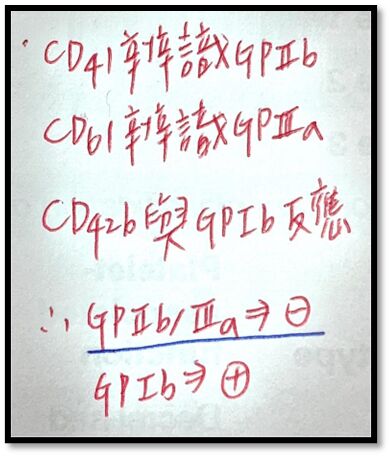 · CD41辨識GPⅡb
CD61辨識GPⅢa
CD42b與GPⅠb反應
∴ GPⅡb/Ⅲa⇒⊖
GPⅠb⇒⊕